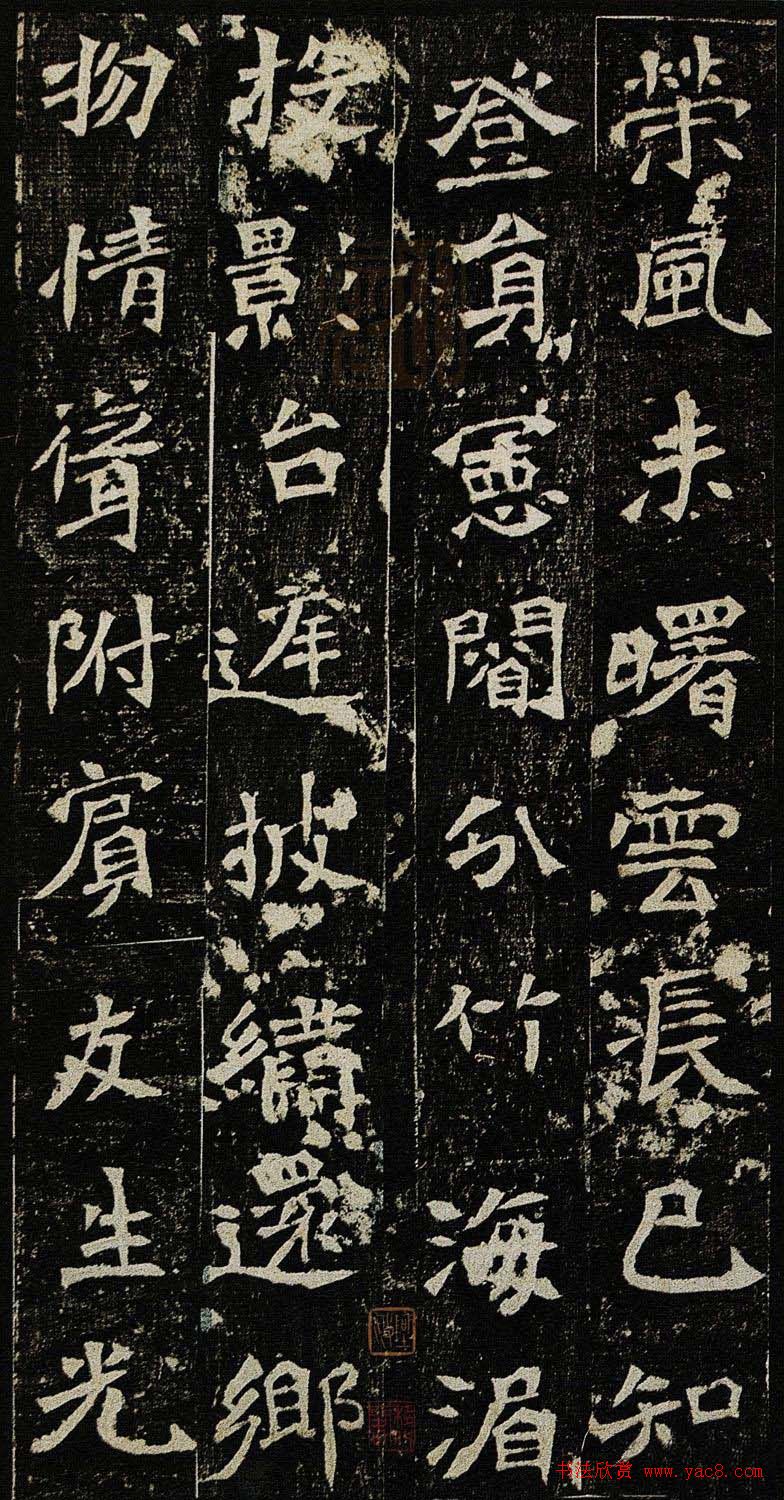 榮風未曙雲張已知
登身憲分竹海湄
景台遲披繡還鄉
物情聳附賓友生光
书法欣赏 www.yac8.com